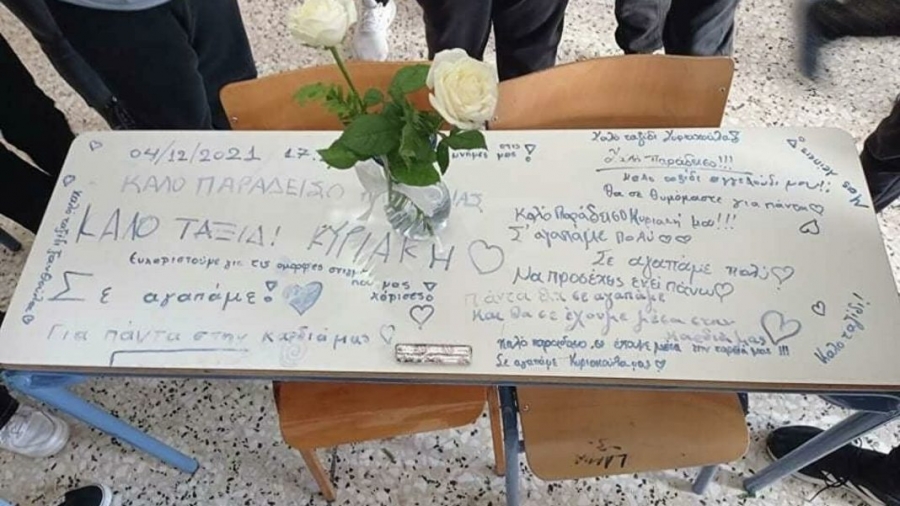 04/12/2021 17:
ΚΑΛΟ ΠΑΡΑΔΕΙΣΟ
ΚΑΛΟ ΤΑΞΙΔΙ ΚΥΡΙΑΚΗ
Ευχαριστούμε για τις όμορφες στιγμές
που μας
χάρισες
Σε αγαπάμε!
Για πάντα στην καρδιά μας
στις
μνήμες μας!
Καλό ταξίδι
Παράδεισο!!!
Καλό ταξίδι αγγελούδι μου!!
Θα σε θυμόμαστε για πάντα
Καλό Παράδεισο Κυριακή μου!!!
Σ'αγαπάμε πολύ
Σε αγαπάμε πολύ
Να προσέχεις εκεί πάνω
Πάντα θα σε αγαπάμε
και θα σε έχουμε μέσα στην
καρδιά μας
Καλό παράδεισο
την καρδιά μας!!!
Σε αγαπάμε
Μας λείπεις
Καλό ταξίδι!
Καλό ταξίδι